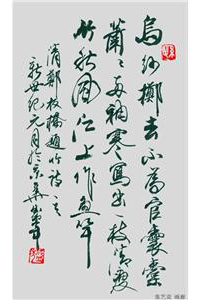 烏紗擲去不為官囊橐
蕭蕭兩袖寒寫出一枝清瘦
竹秋風江上作魚竿
清鄭板橋題竹詩之一
新世紀元月於京華